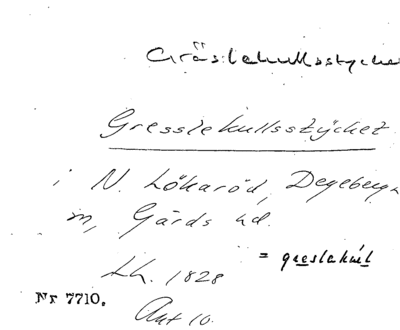 Gräslekullsstycke
Gresslekullsstycket
i N. Lökaröd, Degeberga
m, Gärds hd.
Lh. 1828
= greslakul
Nr 7710.
Akt 10.